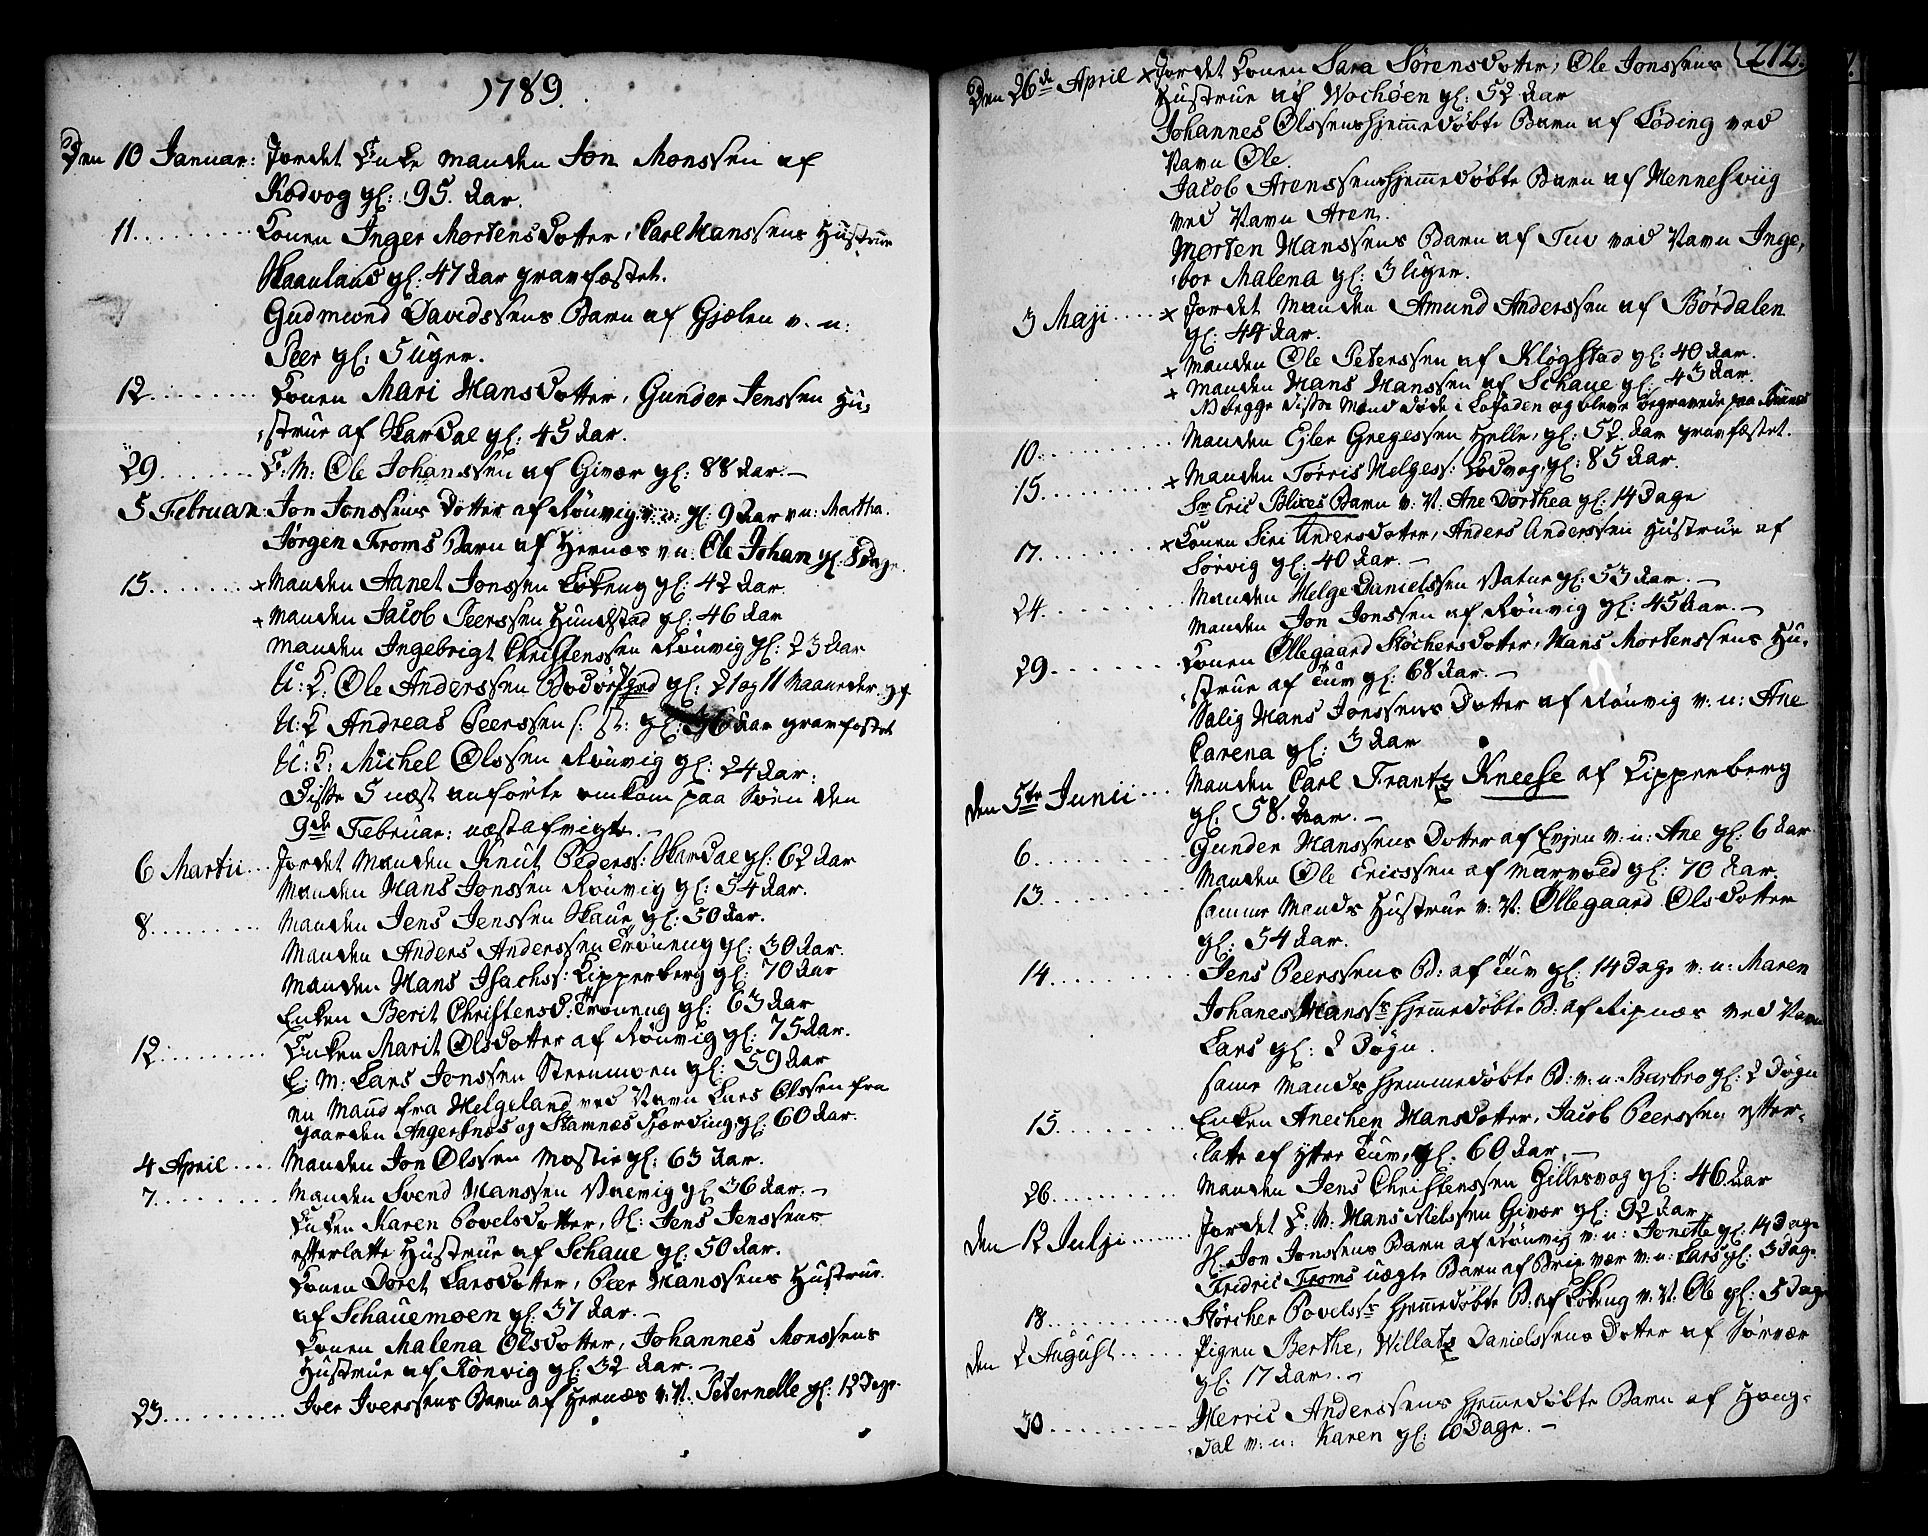 1789.
Den 10 Januar: Jordet Enke manden Jon Monssen af
Kodvog gl: 95. Aar.
11......... Konen Inger Mortensdotter, Carl Hanssens Hustrue
Skaanlans gl: 47 Aar gravfæstet.
Gudmund Davidssens Barn af Gjælen v. n:
Peer gl: 5 Uger.
12......... Konen Mari Hansdotter, Gunder Jenssen Hu-
strue af Skardal gl: 45 Aar.
29......... E: M: Ole Johanssen af Givær gl: 88 Aar.
5 Februar: Jon Jonssens Dotter af Rönvig gl: 9 Aar v n: Martha.
Jørgen Froms Barn af Hernæs v n: Ole Johan gl. 8 Dage.
15....... × Manden Aanet Jonssen Løkeng gl: 42 Aar.
× Manden Jacob Peerssen Hundstad gl: 46 Aar
Manden Ingebrigt Christenssen Rönvig gl: 23 Aar
U: K: Ole Anderssen Bodøe gl: 21 og 11 Maaneder gf
U: K Andreas Peerssen gl: 36 Aar gravfæstet
U: K: Michel Olssen Rönvig gl: 24 Aar:
Disse 5 næst anførte omkom paa Søen den
9de Februar: næstafvigte.
6 Martii ... Jordet Manden Knut Peders: Skardal gl: 62 Aar
Manden Hans Jonssen Rönvig gl: 54 Aar.
8......... Manden Jens Jenssen Skaue gl: 50 Aar.
Manden Anders Anderssen Trøneng gl: 30 Aar.
Manden Hans Isachss: Kipperberg gl: 70 Aar
Enken Berit Christensd: Trøneng gl: 63 Aar
12......... Enken Marit Olsdotter af Rönvig gl: 75 Aar.
E: M: Lars Jonssen Steenmoen gl: 59 Aar
en Mand fra Helgeland ved Navn Lars Olssen fra
gaarden Angersnes og Stamnes Fjærding gl: 60 Aar.
4 April .... Manden Jon Olssen Mostie gl: 63 Aar.
7......... Manden Svend Hanssen gl: 36 Aar.
Enken Karen Povelsdotter, Sl: Jens Jenssens
efterlatte Hustrue af Schaue gl: 50 Aar.
Konen Doret Larsdotter, Peer Hanssens Hustrue
af Schauemoen gl: 37 Aar.
Konen Malena Olsdotter, Johannes Monssens
Hustrue af Rönvig gl: 32 Aar.
23......... Iver Iverssens Barn af Hernæs v: N. Peternelle gl: 12 Dage.
212.
Den 26de April × Jordet Konen Sara Sørensdotter, Ole Jonssens
Hustrue af Wochsen gl: 52 Aar
Johannes Olssens hjemmedøbte Barn af Løding ved
Navn Ole.
Jacob Arenssens hjemmedøbte Barn af Hennesviig
ved Navn Aren.
Morten Hanssens Barn af Tuv ved Navn Inge-
bor Malena gl: 3 Uger.
3 Maji .... × Jordet Manden Amund Anderssen af Børdalen
gl: 44 Aar.
× Manden Ole Peterssen af Kløgstad gl: 40 Aar.
× Manden Hans Hanssen af Schaue gl: 43 Aar.
NB begge disse Mænd døde i Lofoden og bleve begravede paa
10......... Manden Ejler Gregessen Helle, gl: 52. Aar gravfæstet.
15....... × Manden Tørris Helgess: Kodvog, gl: 85 Aar.
Sr Eric Blixes Barn v: N. Ane Dorthea gl: 14 Dage
17....... × Konen Siri Andersdotter, Anders Anderssen Hustrue af
Sørvig gl: 40 Aar.
24......... Manden Helge Danielssen Natue gl: 53 Aar.
Manden Jon Jonssen af Rönvig gl: 45 Aar.
29......... Konen Ollegaard Størchersdotter, Hans Mortenssens Hu-
strue af Tuv gl: 68 Aar.
Salig Hans Jonssens Dotter af Rönvig v: n: Ane
Carena gl: 3 Aar
den 5te Junii ... Manden Carl Frantz Kneese af Kipperberg
gl: 58. Aar.
6......... Gunder Hanssens Dotter af Evjen v: n: Ane gl: 6 Aar
13......... Manden Ole Ericssen af Marvold gl: 70 Aar.
samme Mands Hustrue v: N: Ollegaard Olsdotter
gl: 54 Aar.
14...... Jens Peerssens B: af Tuv gl: 14 Dage v: n: Maren
Johanes Hanssr hjemmedøbte B: af Ripnæs ved Navn
Lars gl: 2 Døgn.
same Mands hjemmedøbte B: v: n: Barbro gl: 2 Døgn
15......... Enken Anechen Hansdotter, Jacob Peerssen efter-
latte af Ytter Tuv, gl. 60 Aar.
26......... Manden Jens Christenssen Gillesvog gl: 46 Aar
den 12 Julji ....... Jordet E: M: Hans Nelssen Givær gl: 92 Aar
Sl: Jon Jonssens Barn af Rönvig v: n: Jonette gl: 14 Dage
Fredric Froms uægte Barn af Brixvær v: n: Lars gl: 3 Dage.
18......... Størcher Povelssr hjemmedøbte B: af Løkeng v: N: Ole gl: 5 Dage
den 2 August ...... Pigen Berthe, Willatz Danielssens Dotter af Sørvær
gl: 17 Aar.
30......... Herric Anderssens hjemmedøbte Barn af Hong-
dal v: n: Karen gl: 10 Dage.